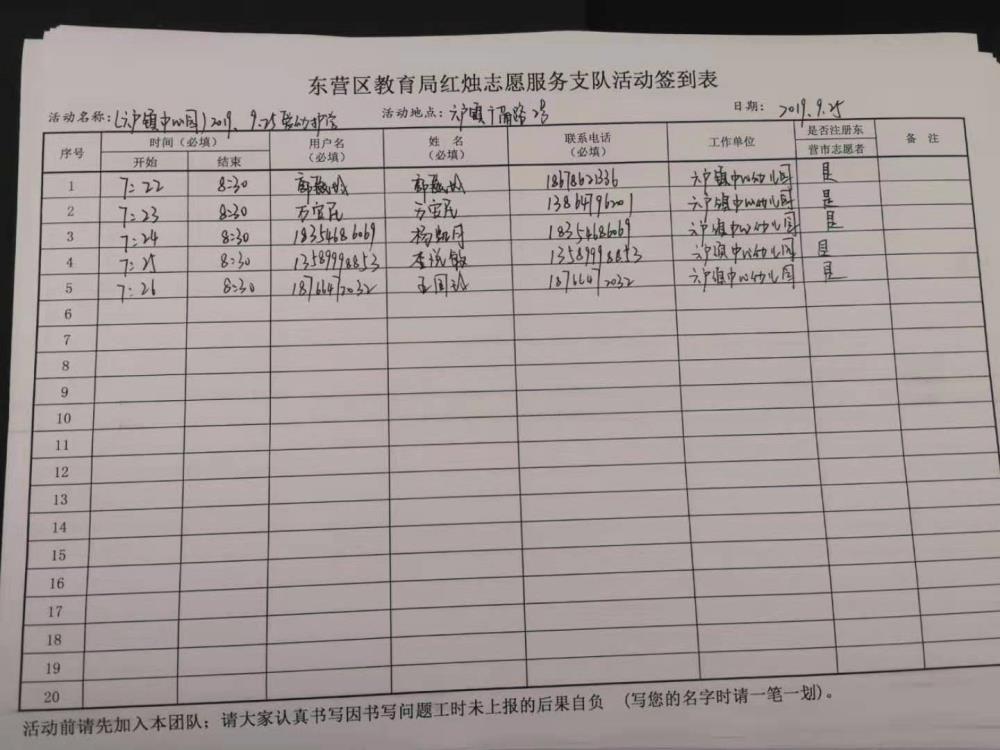 东营区教育局红烛志愿服务支队活动签到表
活动名称:(六户镇中心园)2019、9.25 劳动护学 活动地点:六户镇广蒲路2号 日期: 2019.9.25
序号 时间(必填) 用户名(必填) 姓 名(必填) 联系电话(必填) 工作单位 是否注册东营市志愿者 备 注
开始 结束
1 7:22 8:30 18678621336 六户镇中心幼儿园 是
2 7:23 8:30 13864796201 六户镇中心幼儿园 是
3 7:24 8:30 18354686069 杨 月 18354686069 六户镇中心幼儿园 是
4 7:25 8:30 13589998853 李悦敏 13589998853 六户镇中心幼儿园 是
5 7:26 8:30 18766472032 王国 18766472032 六户镇中心幼儿园 是
6
7
8
9
10
11
12
13
14
15
16
17
18
19
20
活动前请先加入本团队;请大家认真书写因书写问题工时未上报的后果自负 (写您的名字时请一笔一划)。